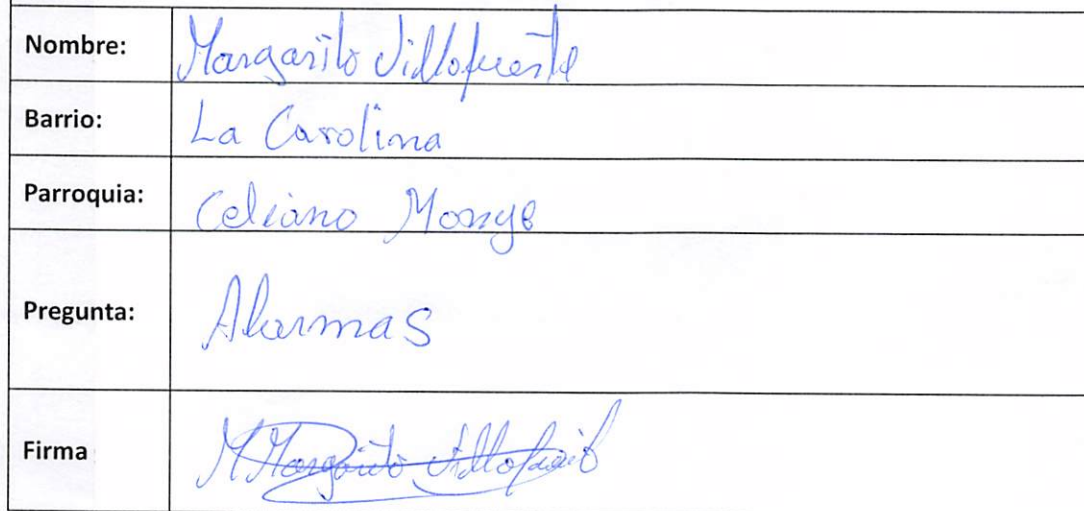 Nombre: Margarito Villofuerte
Barrio: La Carolina
Parroquia: Celiano Monge
Pregunta: Alarmas
Firma Margarito